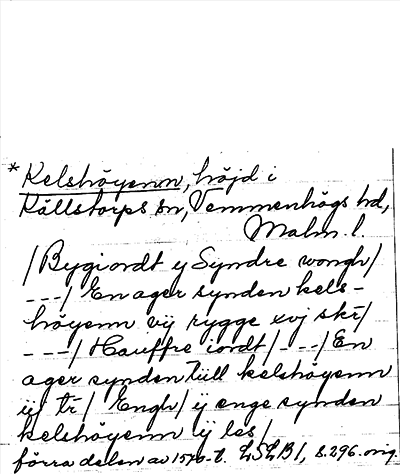 * Kelshöyenn, höjd i
Källstorps sn, Vemmenhögs hd,
Malm. l.
/Bygiordt y Syndre wongh/
---/ En ager synden kels-
höyenn vij rygge xvj skr/
---/ Hauffre iordt/ ---/ En
ager synden till kelshöyenn
ij tr/ Engh/ ij enge synden
kelshöyenn ij les/
förra delen av 1570-t. LSLB1, s. 296. orig.